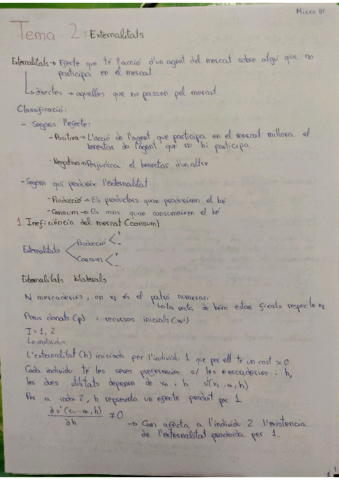 Micro III
Tema 2: Externalitats
Externalitats → Efecte que té l'acció d'un agent del mercat sobre algú que no
participa en el mercat
↳ directes → aquelles que no passen pel mercat
Classificació:
- Segons l'efecte:
- Positiva → L'acció de l'agent que participa en el mercat millora el
benestar de l'agent que no hi participa
- Negativa → Perjudica el benestar d'un altre
- Segons qui produeix l'externalitat
- Producció → Els productors quan produeixen el bé
- Consum → Els quan consumeixen el bé
1. Ineficiència del mercat (consum)
Externalitats
Producció
Consum
Externalitats Bilaterals
N mercaderies, on és el patró numerari
la resta de béns estan fixats respecte
Preus donats (p) i recursos inicials
I = 1, 2
L'externalitat (h) iniciada per l'individu 1 que per ell té un cost ≈ 0
Cada individu té les seves preferències s/ les mercaderies i h,
les dues utilitats depenen de i h
Per a indiv 2, h representa un efecte produït per 1
≠ 0
→ Com afecta a l'individu 2 l'existència
de l'externalitat produïda per 1.